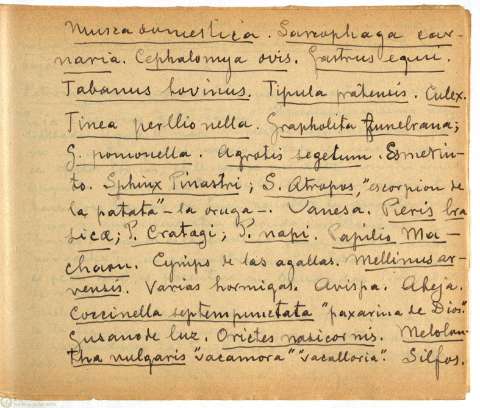 Musca domestica. Sarcophaga car-
naria. Cephalomya ovis. Gastrus equi.
Tabanus bovinus. Tipula pratensis. Culex.
Tinea perllionella. Grapholita funebrana;
G. pomonella. Agrotis segetum. Esmerin-
to. Sphinx Pinastri; S. Atropos, "escorpion de
la patata" - la oruga -. Vanesa. Pieris bra
sicæ; P. Cratagi; P. napi. Papilio Ma-
chaon. Cynips de las agallas. Mellinus ar-
vensis. Varias hormigas. Avispa. Abeja.
Coccinella septempunctata "paxarina de Dios".
Gusano de luz. Orictes nasicornis. Melolon-
tha vulgaris "vacamora" "vacalloria". Silfos.